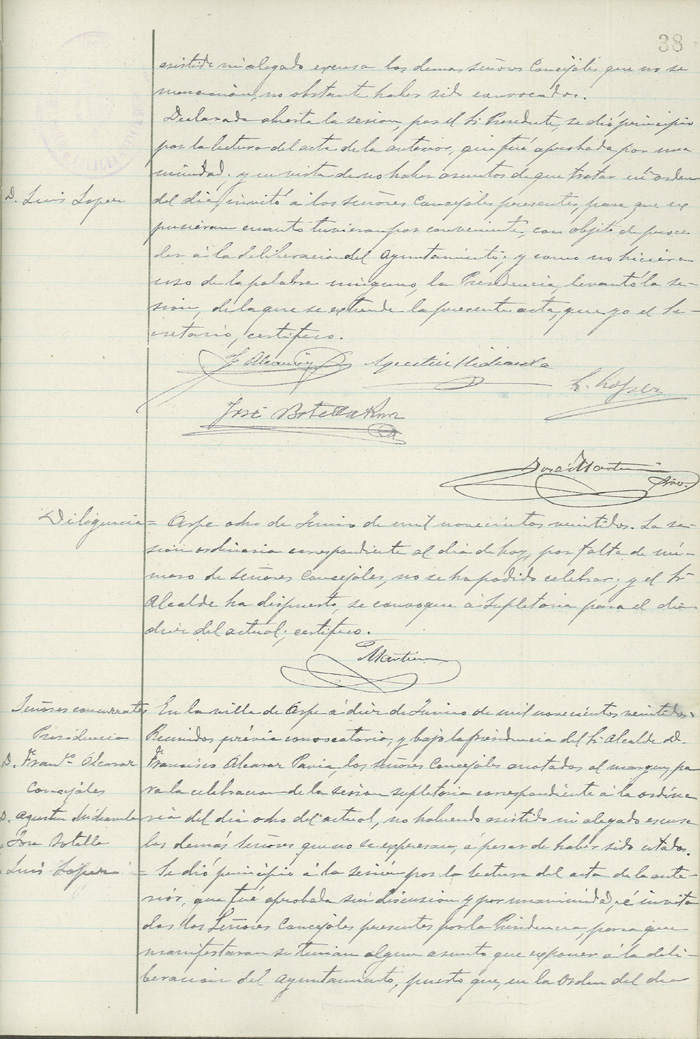 38
asistido ni alegado excusa los demas señores Concejales que no se
mencionan, no obstante haber sido convocados.
Declarada abierta la sesion por el Sr Presidente, se dió principio
por la lectura del acta de la anterior, que fué aprobada por una-
nimidad; y en vista de no haber asuntos de que tratar en orden
D. Luis Lopez
del dia, invitó á los señores Concejales presentes, para que ex
pusieran cuanto tuvieran por conveniente, con objeto de proce-
der á la deliberacion del Ayuntamiento; y como no hiciera
uso de la palabra ninguno, la Presidencia levantó la se-
sion, de la que se extiende la presente acta, que yo el Se-
cretario, certifico.
F. Alcaraz Agustin L. Lopez
José Botella
José Martin
Diligencia = Aspe ocho de Junio de mil novecientos veintidos. La se-
sion ordinaria correspondiente al dia de hoy, por falta de nú-
mero de señores Concejales, no se ha podido celebrar; y el Sr
Alcalde ha dispuesto, se convoque á supletoria para el dia
diez del actual; certifico.
Martin
Señores concurrentes
Presidencia
D. Franco Alcaraz
Concejales
D. Agustin
José Botella
Luis López
En la villa de Aspe á diez de Junio de mil novecientos veintidos.
Reunidos prévia convocatoria, y bajo la presidencia del Sr Alcalde D.
Francisco Alcaraz Pavia, los señores Concejales anotados al margen, pa
ra la celebracion de la sesion supletoria correspondiente á la ordina
ria del dia ocho del actual, no habiendo asistido ni alegado escusa
los demás señores que no se expresan, á pesar de haber sido citados.
Se dió principio á la sesión por la lectura del acta de la ante-
rior, que fué aprobada sin discusion y por unanimidad, é invita
dos los Señores Concejales presentes por la Presidencia, para que
manifestaran si tenian algun asunto que exponer á la deli-
beracion del Ayuntamiento, puesto que, en la Orden del dia